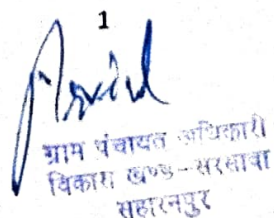 1
ग्राम पंचायत अधिकारी
विकास खण्ड-सरसावा
सहारनपुर